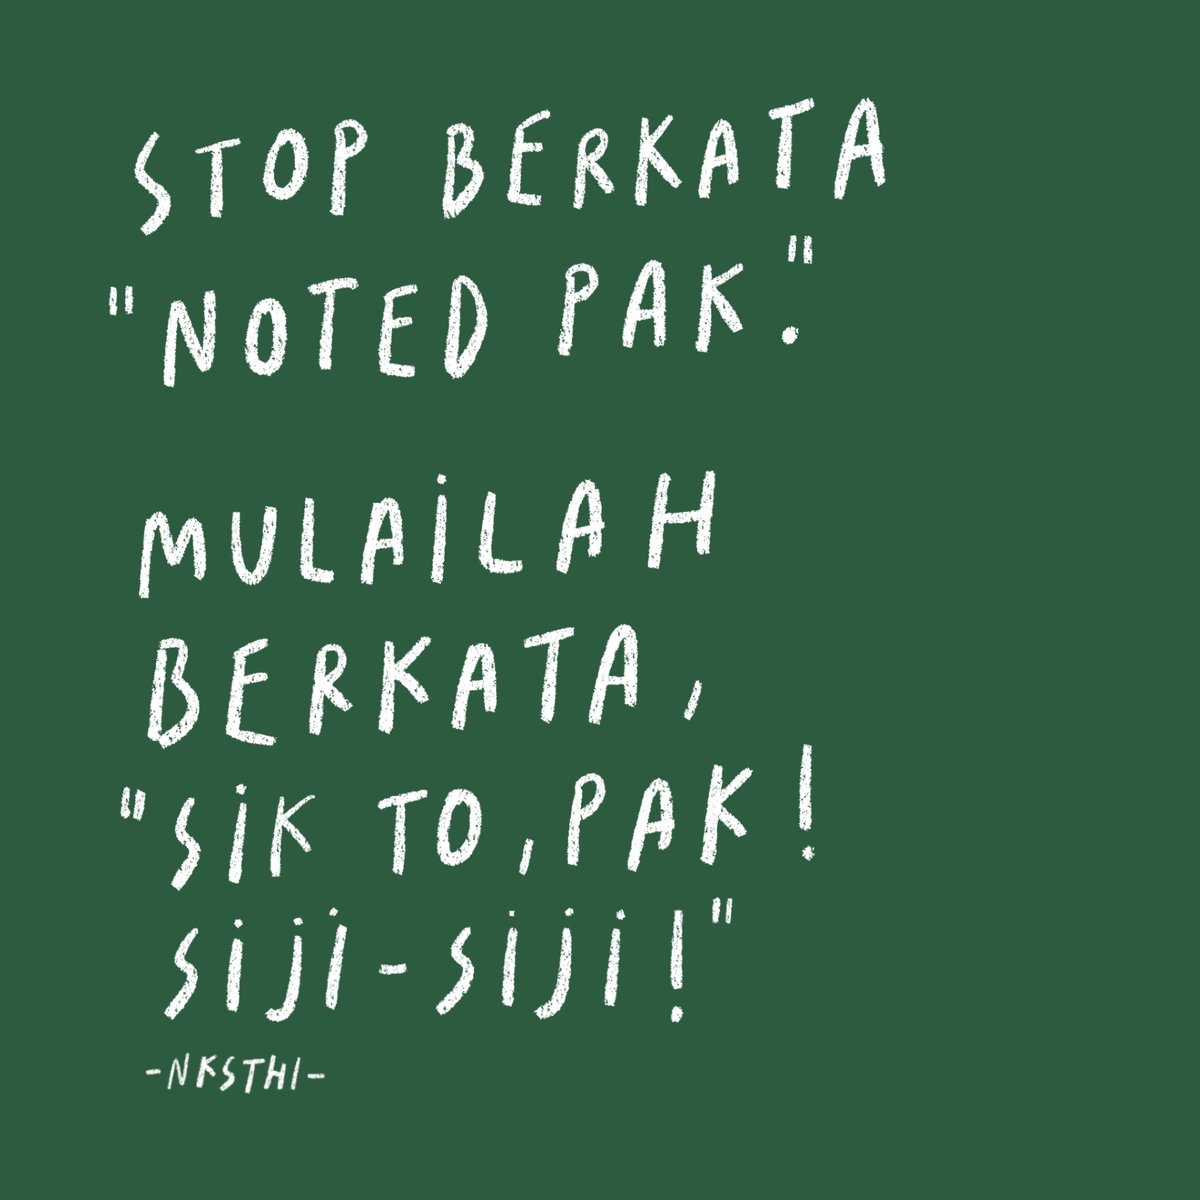 STOP BERKATA
"NOTED PAK."
MULAILAH
BERKATA,
"SIK TO, PAK!
SIJI-SIJI!"
-NKSTHI-